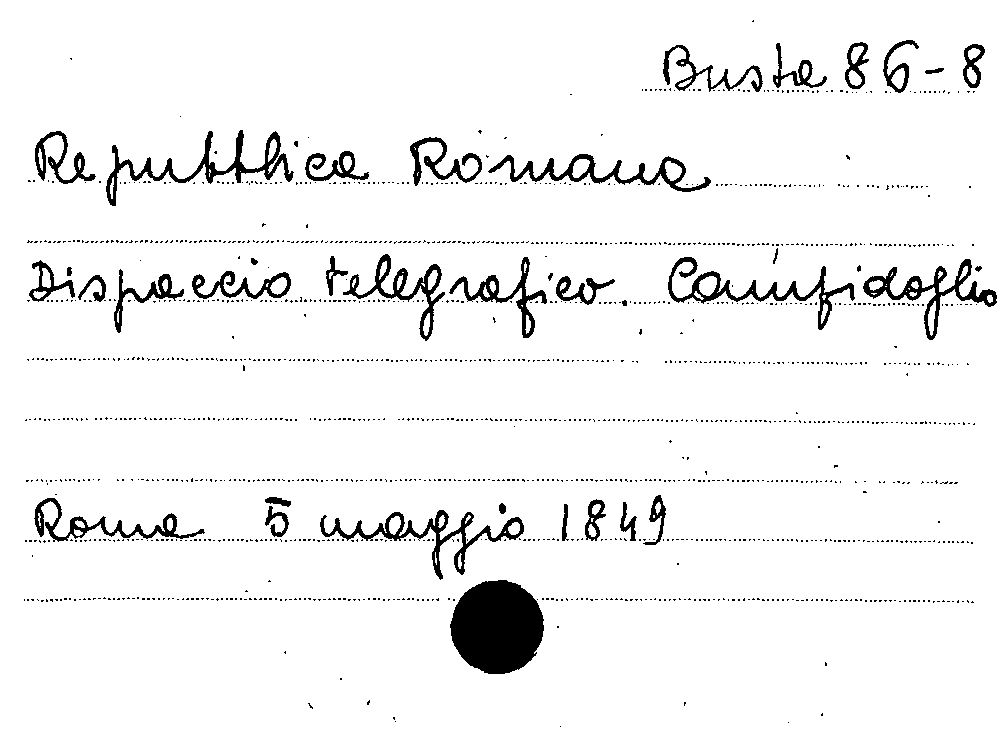 Busta 86-8
Repubblica Romana
Dispaccio telegrafico. Campidoglio
Roma 5 maggio 1849